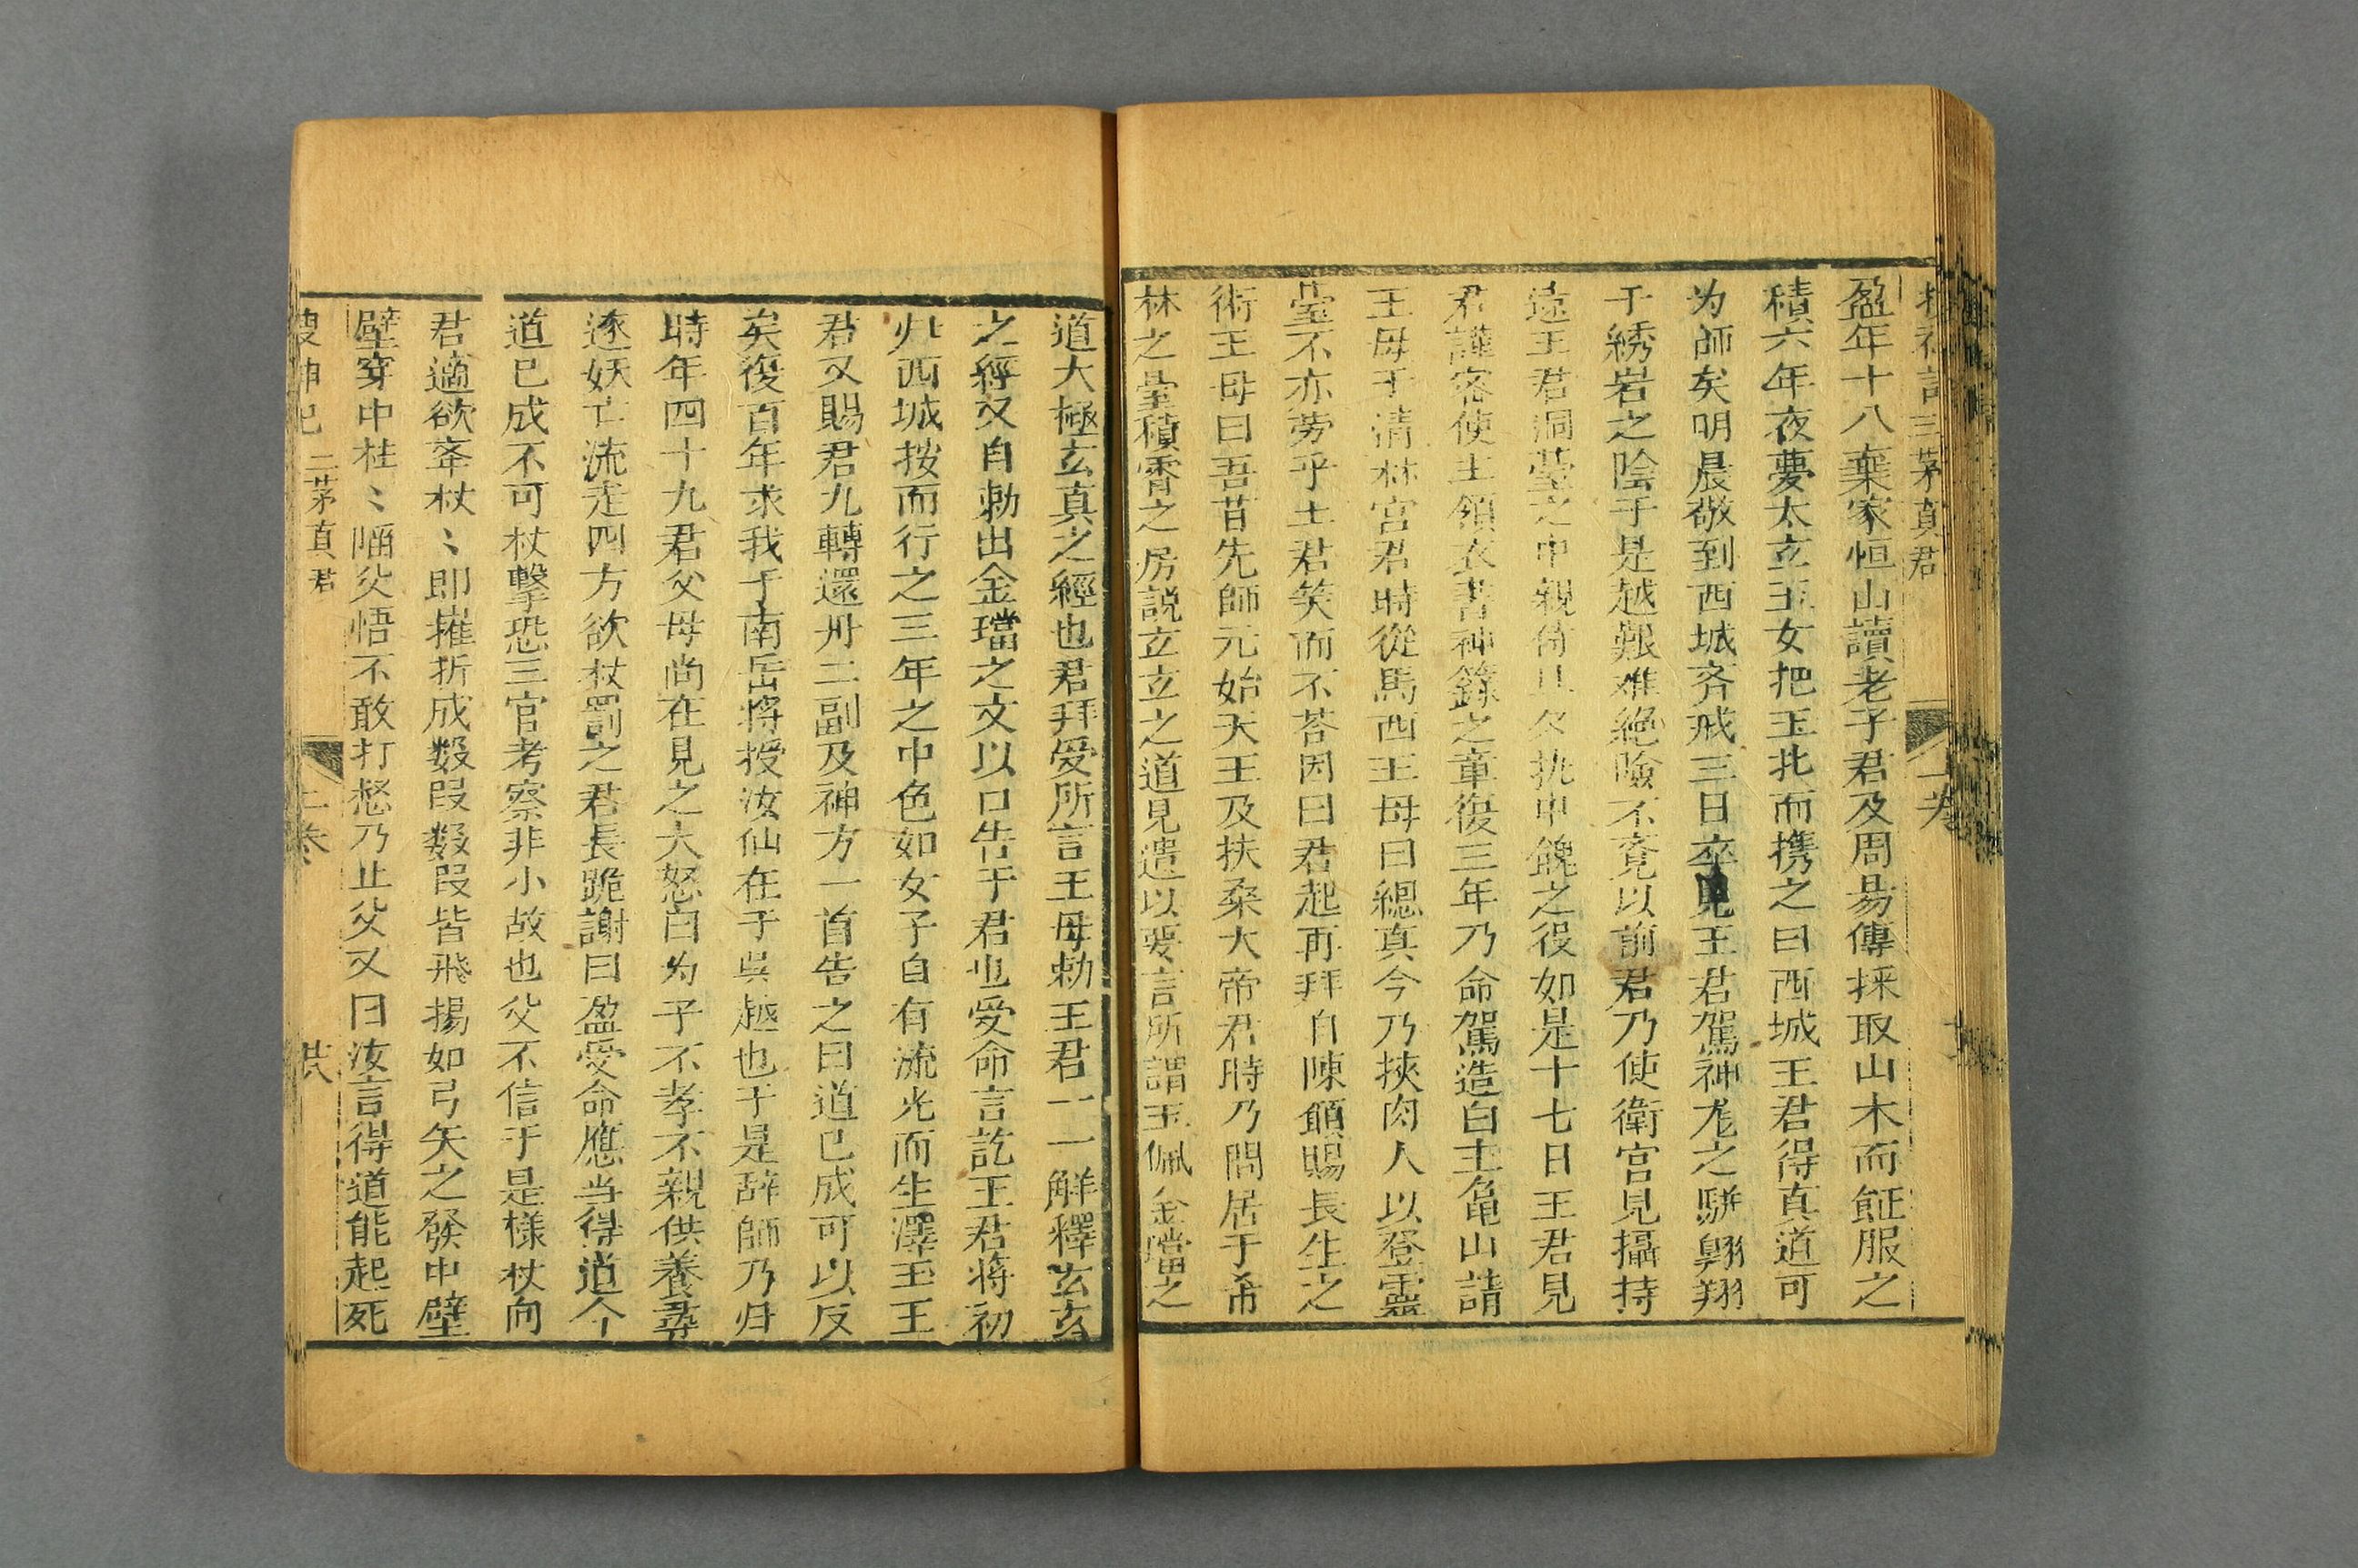 三茅真君
盈年十八棄家恒山讀老子君及周易傳採取山木而餌服之
積六年夜夢太玄玉女把玉札而携之曰西城王君得真道可
为師矣明晨敬到西城斉戒三日卒見王君駕神尨之駢翱翔
于綉岩之陰于是越艱难絶險不覔以前君乃使衛官見攝持
遠王君洞䑓之中親侍 巾 之役如是十七日王君見
君謹宻使主領衣書神籙之章復三年乃命駕造白玉亀山請
王母于清林宫君時從焉西王母曰緫真今乃挾肉人以登靈
䑓不亦劳乎王君笑而不荅因曰君起再拜自陳願賜長生之
術王母曰吾昔先師元始天王及扶桒大帝君時乃問居于希
林之䑓積霄之房説玄玄之道見遣以要言所謂玉佩金璫之
道大極玄真之經也君拜受所言王母勅王君一一解釋玄玄
之經又自勅出金璫之文以口告于君也受命言訖王君将初
归西城按而行之三年之中色如女子自有流光而生澤玉王
君又賜君九轉還丹二副及神方一首告之曰道已成可以反
矣復百年求我于南岳将授汝仙在于吳越也于是辞師乃归
時年四十九君父母尚在見之大怒曰为子不孝不親供養尋
逐妖亡流走四方欲杖罰之君長跪謝曰盈受命應当得道今
道已成不可杖擊恐三官考察非小故也父不信于是様杖向
君適欲奉杖〻即摧折成数段数段皆飛揚如弓矢之發中壁
壁穿中柱〻 父悟不敢打愁乃止父又曰汝言得道能起死
二茅真君
二卷